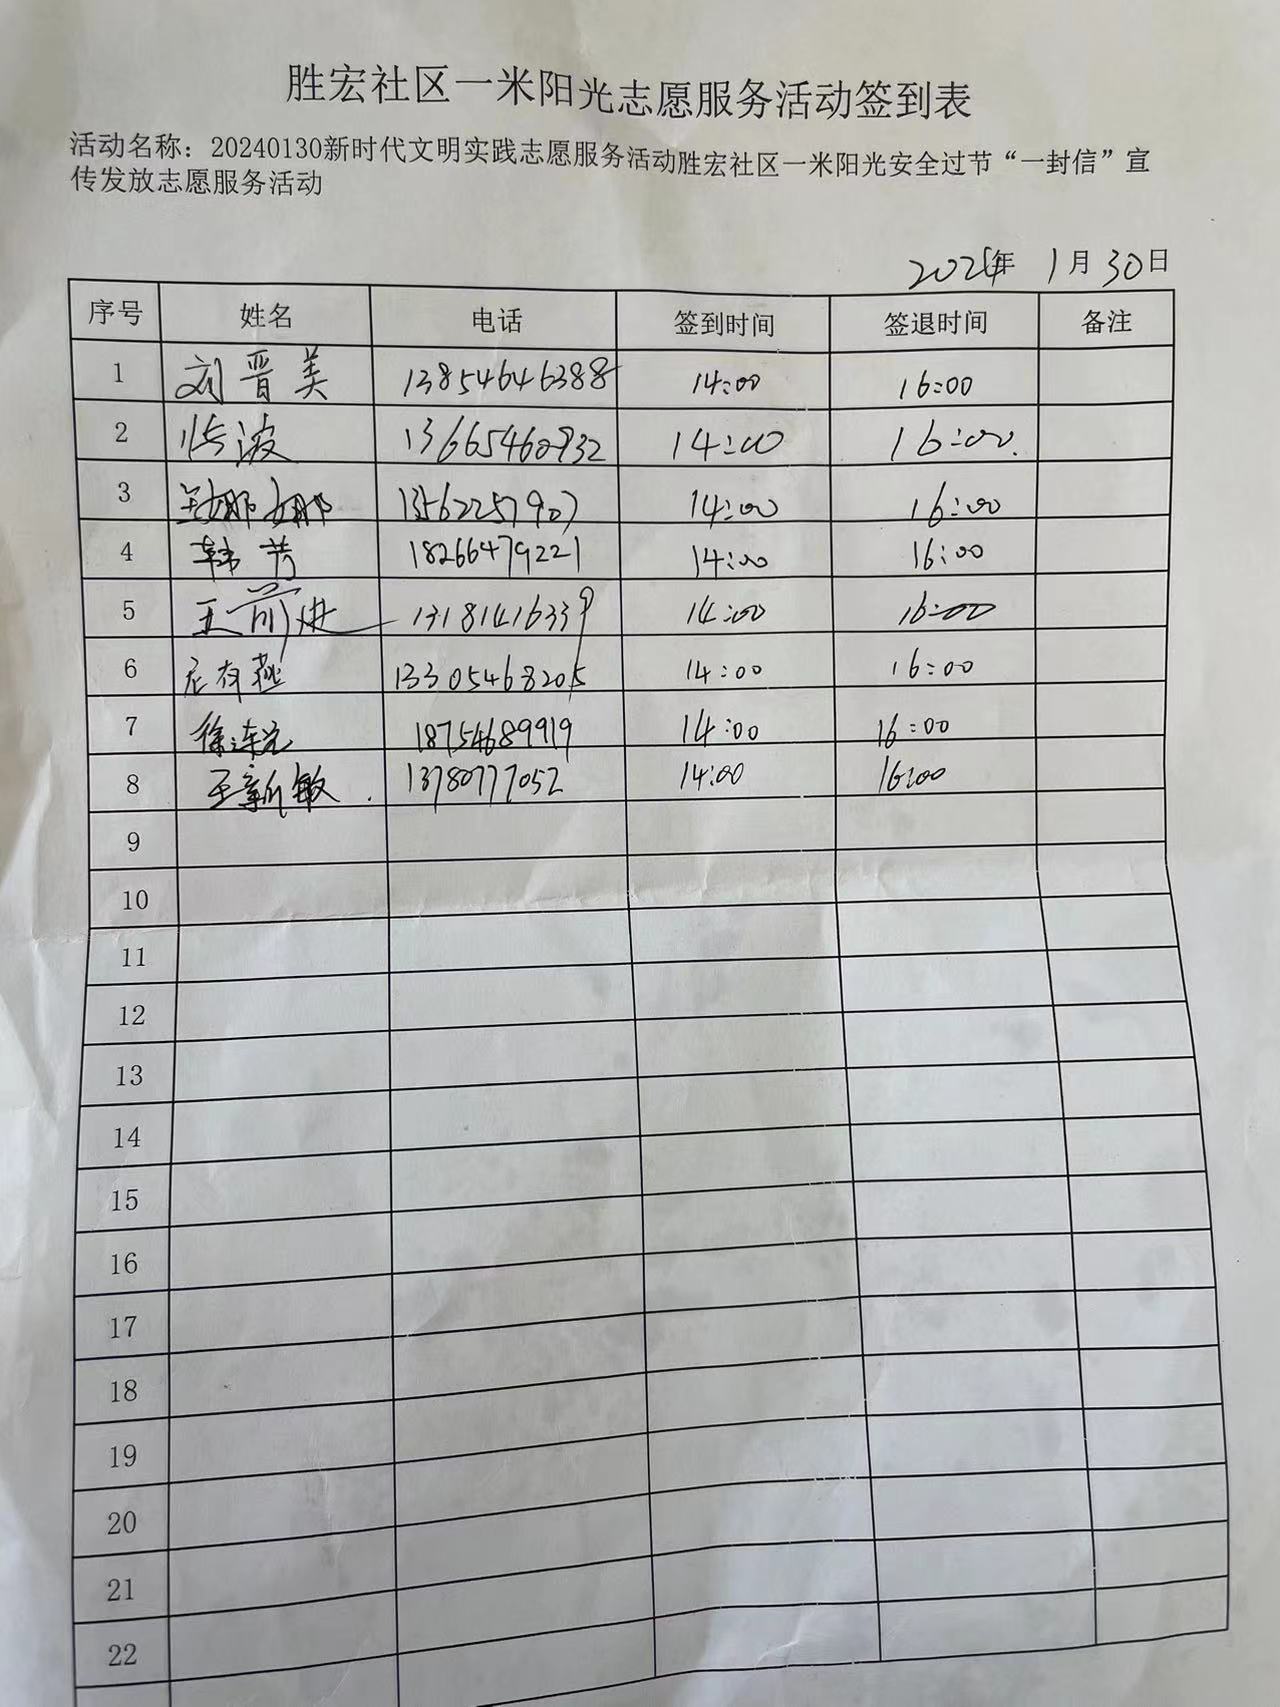 胜宏社区一米阳光志愿服务活动签到表
活动名称：20240130新时代文明实践志愿服务活动胜宏社区一米阳光安全过节“一封信”宣
传发放志愿服务活动
2024年 1月30日
序号 姓名 电话 签到时间 签退时间 备注
1 刘晋美 13854646388 14:00 16:00
2 张波 13665460932 14:00 16:00.
3 娜娜 13562257907 14:00 16:00
4 韩芳 18266479221 14:00 16:00
5 王前进 13181416339 14:00 16:00
6 燕 13305468205 14:00 16:00
7 徐连 18754689919 14:00 16:00
8 王新敏 13780777052 14:00 16:00
9
10
11
12
13
14
15
16
17
18
19
20
21
22